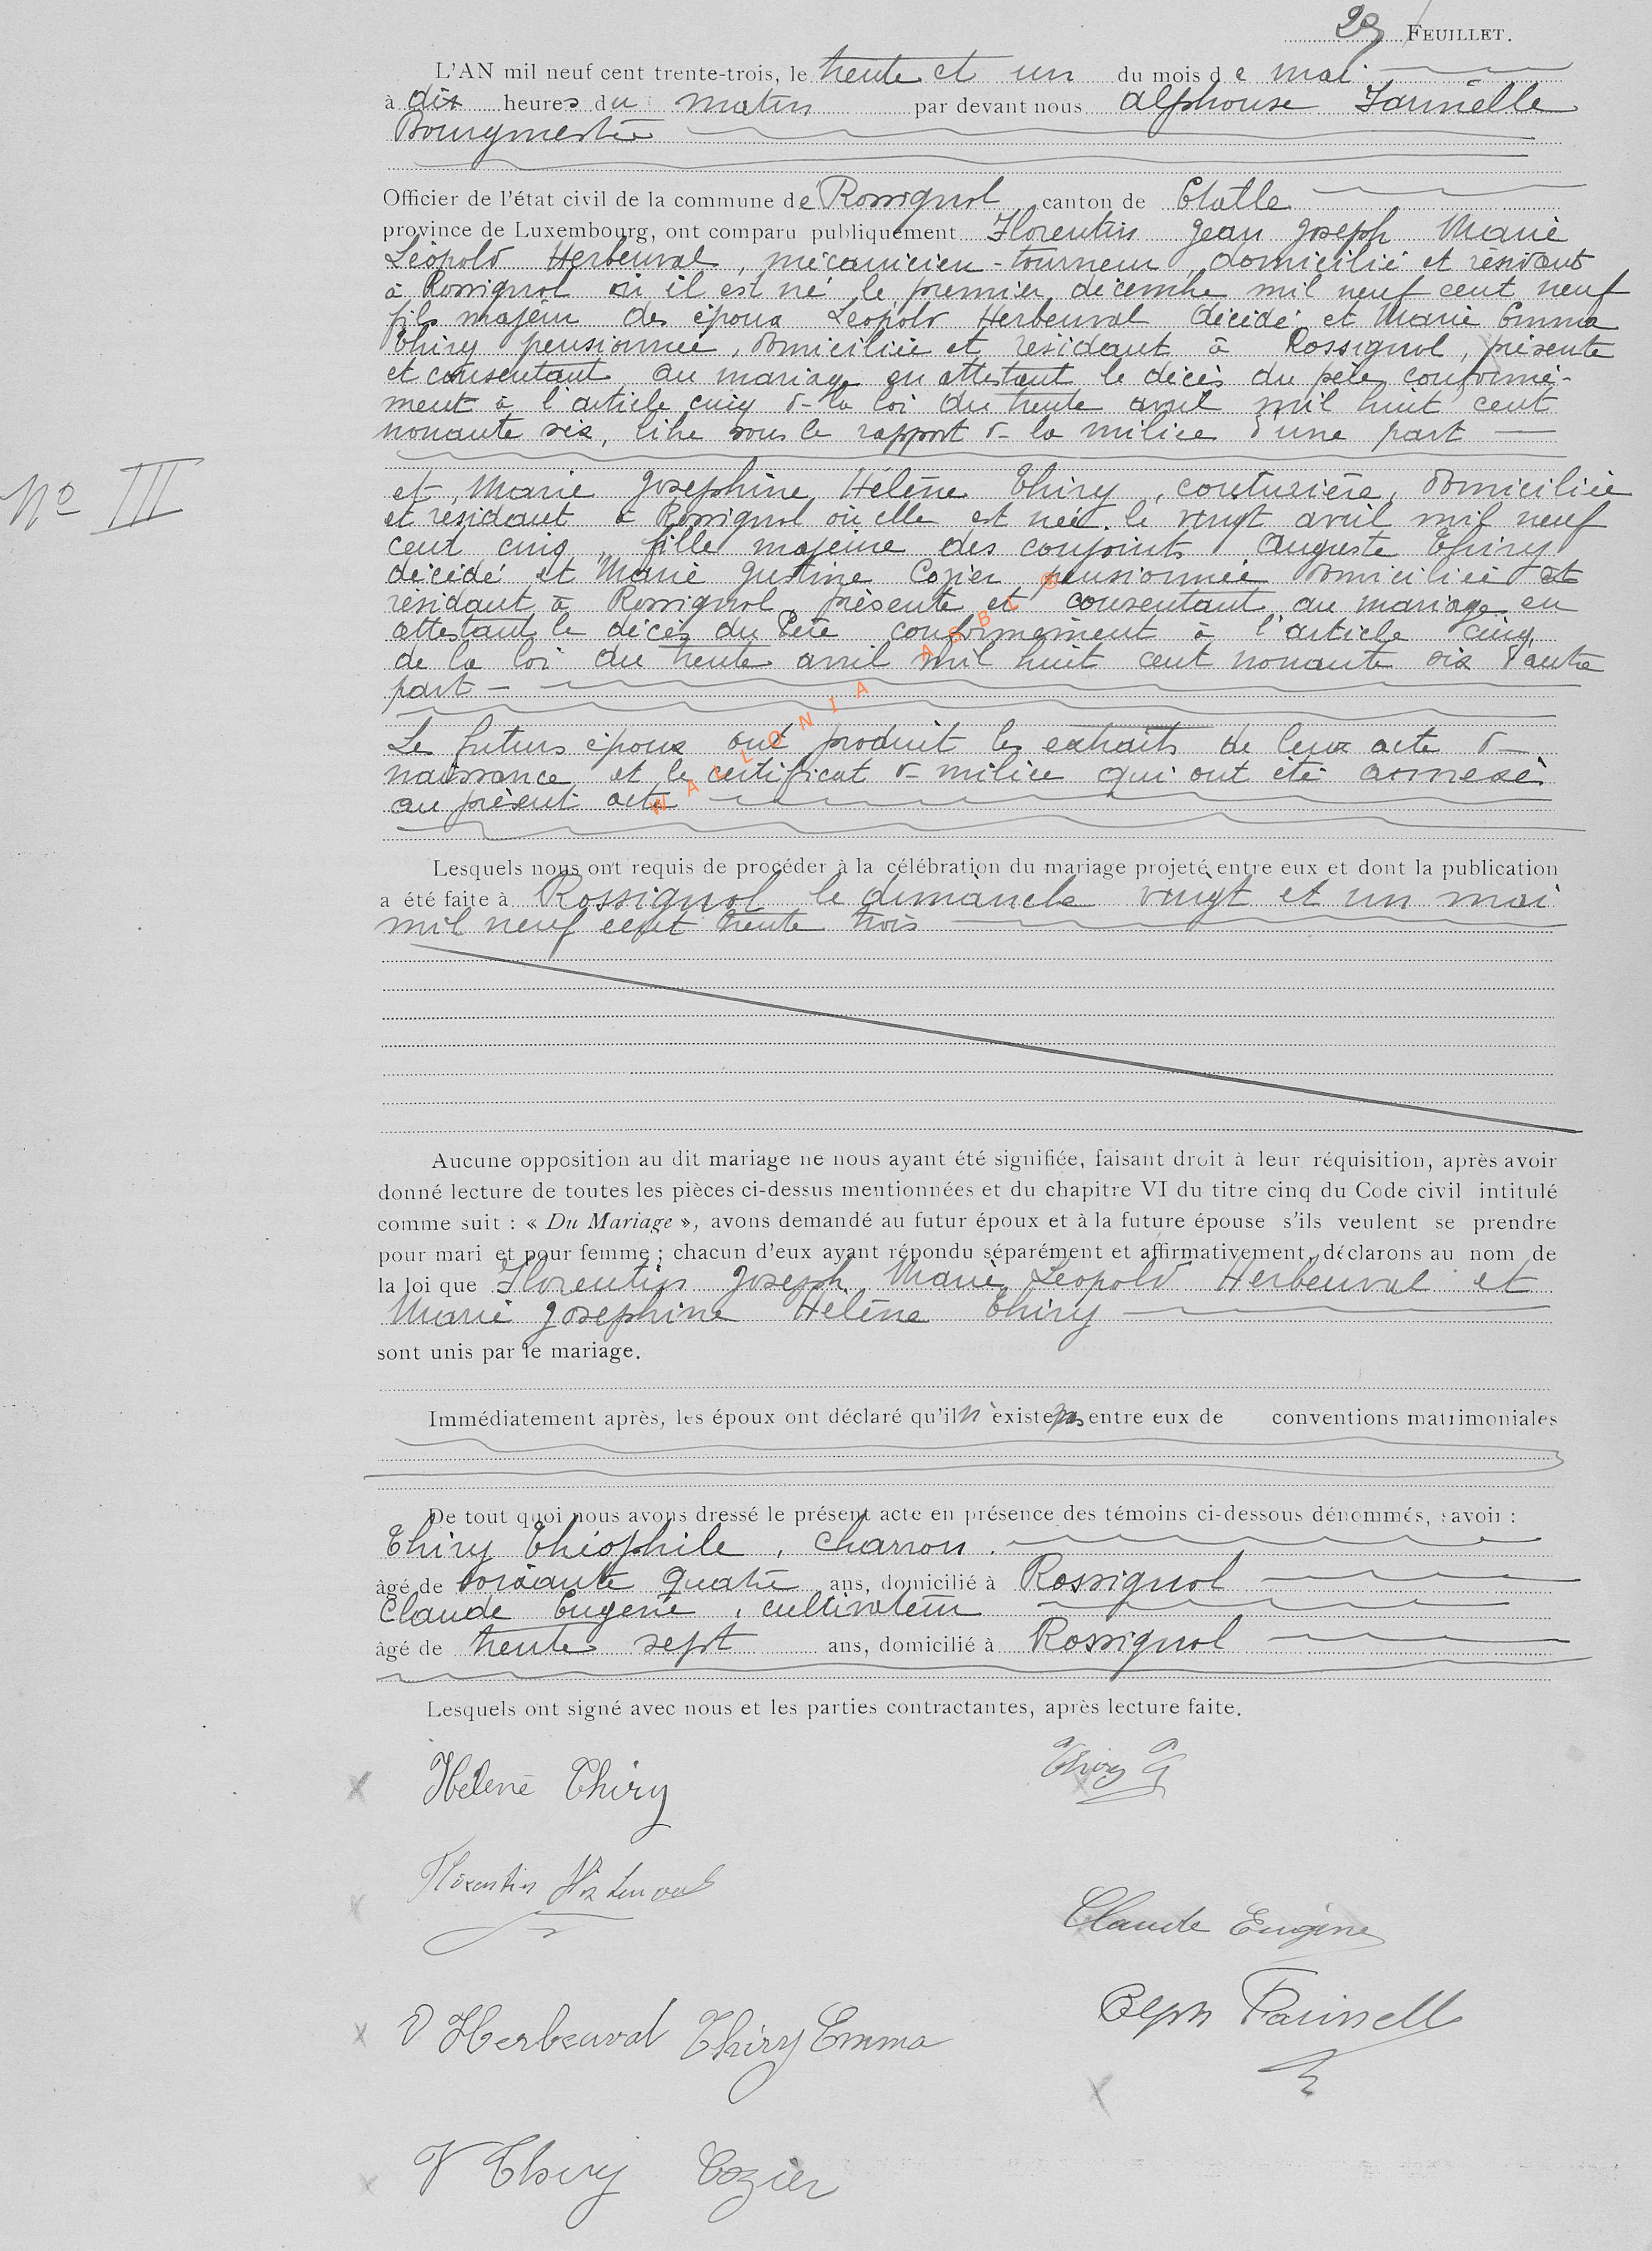 29 FEUILLET.
L'AN mil neuf cent trente-trois, le trente et un du mois de mai
à dix heures du matin par devant nous Alphonse Farinelle
Bourgmestre
Officier de l'état civil de la commune de Rossignol canton de Etalle
province de Luxembourg, ont comparu publiquement Florentin Jean Joseph Marie
Léopold Herbeuval, mécanicien-tourneur, domicilié et résidant
à Rossignol où il est né le premier décembre mil neuf cent neuf
fils majeur des époux Léopold Herbeuval décédé et Marie Emma
Thiry pensionnée, domiciliée et résidant à Rossignol, présente
et consentant au mariage en attestant le décès du père conformé-
ment à l'article cinq d- la loi du trente avril mil huit cent
nonante six, libre sous le rapport d- la milice d'une part
No III
et, Marie Joséphine Hélène Thiry, couturière, domiciliée
et résidant à Rossignol où elle est née le vingt avril mil neuf
cent cinq, fille majeure des conjoints Auguste Thiry
décédé et Marie Justine Cozier pensionnée domiciliée et
résidant à Rossignol, présente et consentant au mariage en
attestant le décès du Père conformément à l'article cinq
de la loi du trente avril mil huit cent nonante six d'autre
part
WALLONIA ASBL ®
Le futurs époux ont produit les extraits de leux acte d-
naissance et le certificat d- milice qui ont été annexé
au présent acte
Lesquels nous ont requis de procéder à la célébration du mariage projeté entre eux et dont la publication
a été faite à Rossignol le dimanche vingt et un mai
mil neuf cent trente trois
Aucune opposition au dit mariage ne nous ayant été signifiée, faisant droit à leur réquisition, après avoir
donné lecture de toutes les pièces ci-dessus mentionnées et du chapitre VI du titre cinq du Code civil intitulé
comme suit : « Du Mariage », avons demandé au futur époux et à la future épouse s'ils veulent se prendre
pour mari et pour femme ; chacun d'eux ayant répondu séparément et affirmativement, déclarons au nom de
la loi que Florentin Joseph Marie Léopold Herbeuval et
Marie Joséphine Hélène Thiry
sont unis par le mariage.
Immédiatement après, les époux ont déclaré qu'il n'existe pas entre eux de conventions matrimoniales
De tout quoi nous avons dressé le présent acte en présence des témoins ci-dessous dénommés, savoir :
Thiry Théophile, charron.
âgé de soixante quatre ans, domicilié à Rossignol
Claude Eugène, cultivateur
âgé de trente sept ans, domicilié à Rossignol
Lesquels ont signé avec nous et les parties contractantes, après lecture faite.
Hélène Thiry
Thiry
Florentin Herbeuval
Claude Eugène
V Herbeuval Thiry Emma
Alph Farinelle
V Thiry Cozier